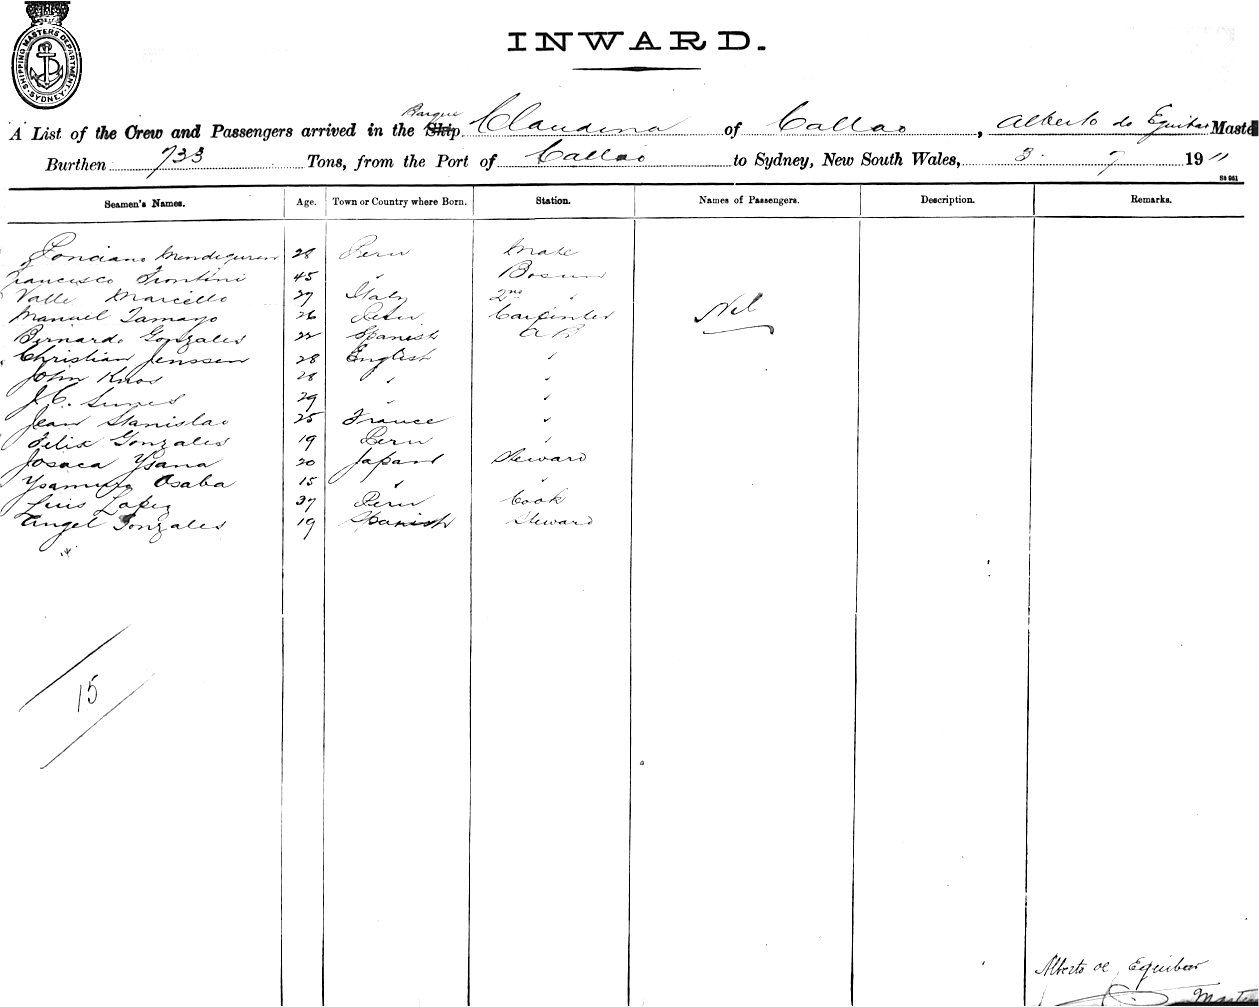 SHIPPING MASTERS DEPARTMENT SYDNEY
INWARD.
A List of the Crew and Passengers arrived in the Ship Barque Claudina of Callao, Alberto de Eguibar Maste
Burthen 733 Tons, from the Port of Callao to Sydney, New South Wales, 3. 7 1911
Seamen's Names. Age. Town or Country where Born. Station. Names of Passengers. Description. Remarks.
Ponciano Mendiguren 28 Peru Mate
Francisco Frontini 45 " Bosun
Valle Marcello 27 Italy 2nd "
Manuel Tamayo 26 Peru Carpenter Nil
Bernardo Gonzales 22 Spanish A B
Christian Jenssen 28 English "
John 28 " "
J. C. 29 " "
Jean Stanislao 25 France "
Felix Gonzales 19 Peru "
Josaca Ysana 20 Japan Steward
Osaba 15 " "
Luis Lopez 37 Peru Cook
Angel Gonzales 19 Spanish Steward
14
15
Alberto de Eguibar
Master